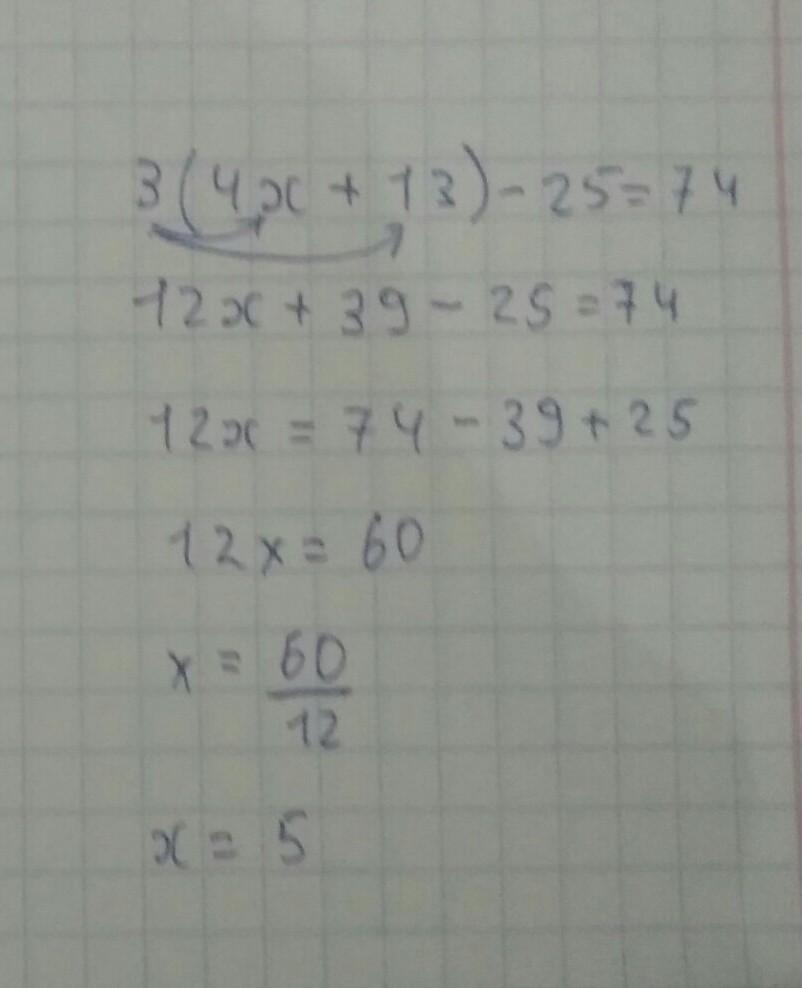 3(4x + 13) - 25 = 74
12x + 39 - 25 = 74
12x = 74 - 39 + 25
12x = 60
x = 60/12
x = 5